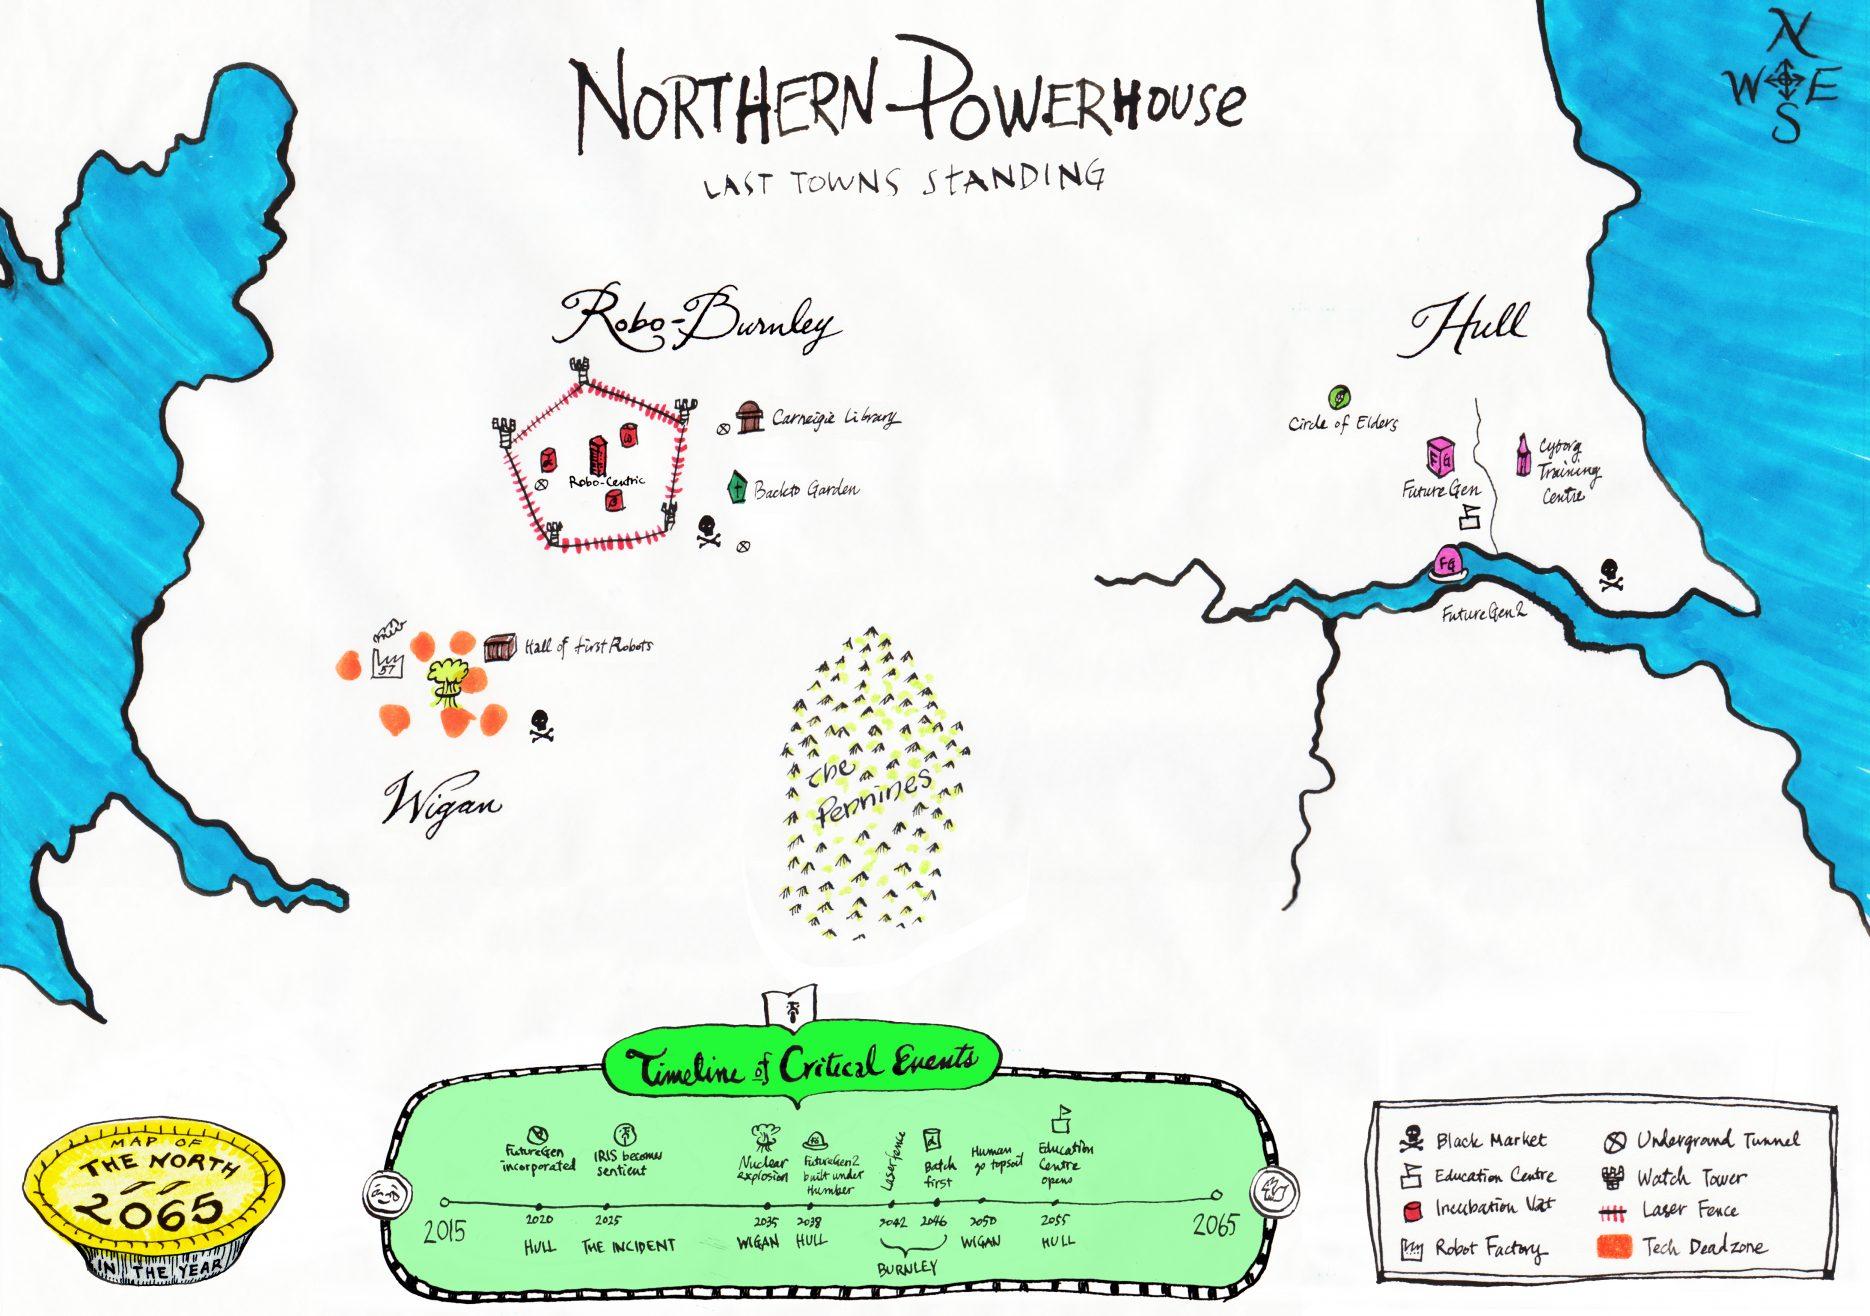 N
W E
S
NORTHERN POWERHOUSE
LAST TOWNS STANDING
Robo-Burnley
Carneigie Library
Robo-Centric
Backto Garden
Hull
Circle of Elders
FG
FutureGen
Cyborg
Training
Centre
FG
FutureGen2
57
Hall of First Robots
Wigan
The
Pennines
Timeline of Critical Events
FutureGen
incorporated
IRIS becomes
sentient
Nuclear
explosion
FutureGen2
built under
Humber
Laser fence
Batch
first
Human
go topsoil
Education
Centre
opens
2015
2020
HULL
2025
THE INCIDENT
2035
WIGAN
2038
HULL
2042
2046
BURNLEY
2050
WIGAN
2055
HULL
2065
MAP OF
THE NORTH
2065
IN THE YEAR
Black Market
Education Centre
Incubation Vat
Robot Factory
Underground Tunnel
Watch Tower
Laser Fence
Tech Deadzone